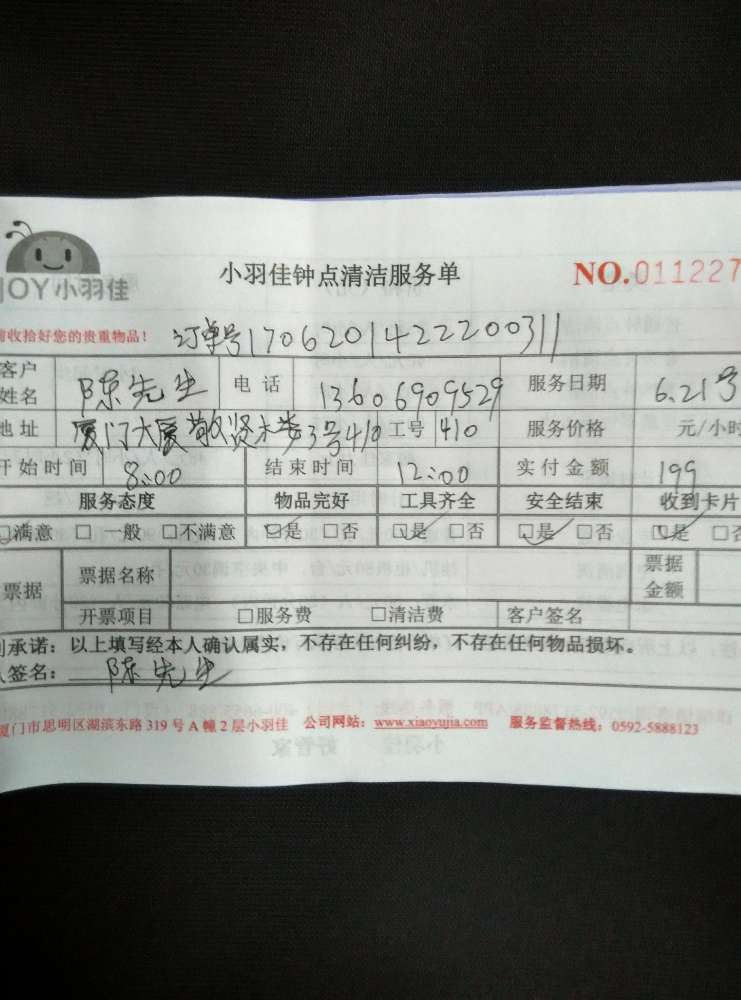 小羽佳钟点清洁服务单
NO.011227
JOY小羽佳
收拾好您的贵重物品！
订单号17062014222200311
客户姓名 陈先生 电话 13606909529 服务日期 6.21号
地址 厦门大厦敬贤木娄3号410 工号 410 服务价格 元/小时
开始时间 8:00 结束时间 12:00 实付金额 199
服务态度 物品完好 工具齐全 安全结束 收到卡片
□满意 □一般 □不满意 □是 □否 □是 □否 □是 □否 □是 □否
票据 票据名称 票据金额
开票项目 □服务费 □清洁费 客户签名
承诺：以上填写经本人确认属实，不存在任何纠纷，不存在任何物品损坏。
签名：陈先生
厦门市思明区湖滨东路319号A幢2层小羽佳 公司网站：www.xiaoyujia.com 服务监督热线：0592-5888123